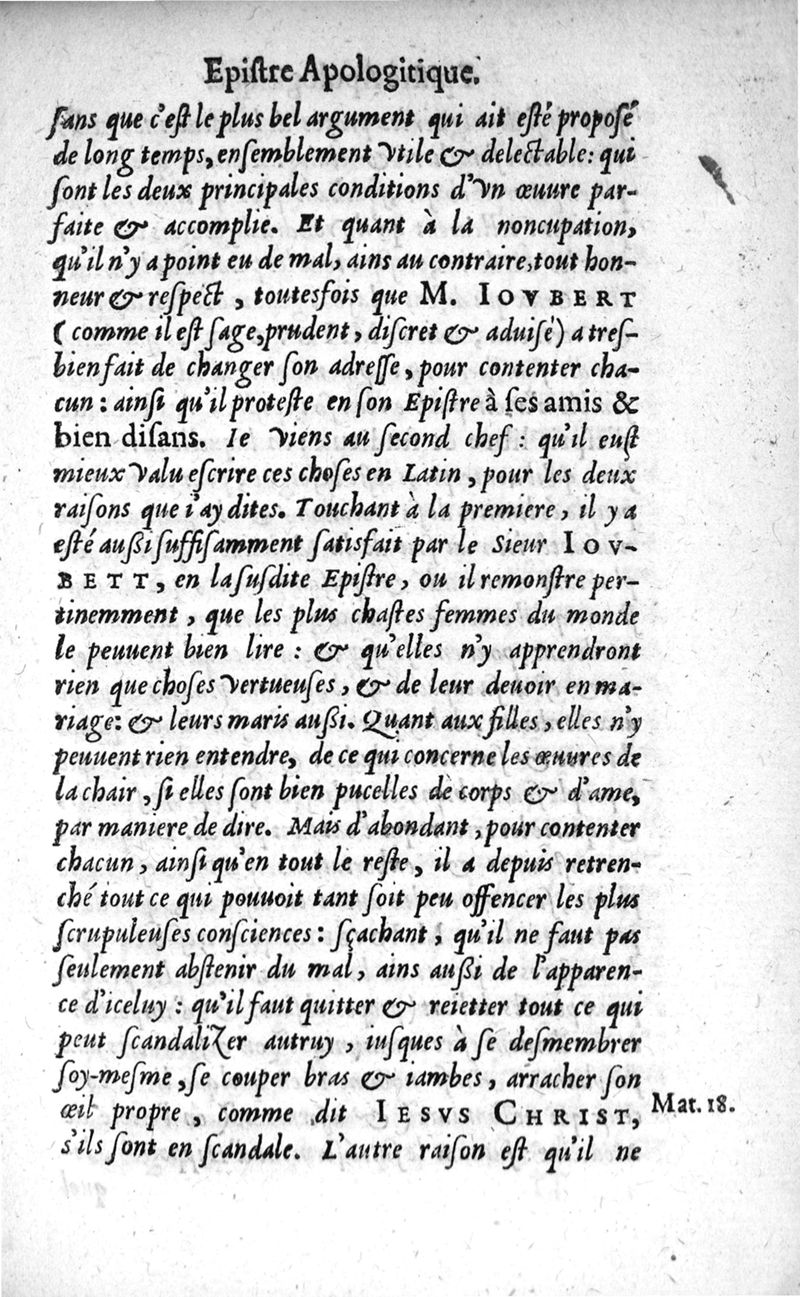 Epiſtre Apologitique.
ſans que c'eſt le plus bel argument qui ait eſté propoſé
de long temps, enſemblement vtile & delectable: qui
ſont les deux principales conditions d'vn œuure par-
faite & accomplie. Et quant à la noncupation,
qu'il n'y a point eu de mal, ains au contraire, tout hon-
neur & reſpect, toutesfois que M. IOVBERT
(comme il eſt ſage, prudent, diſcret & aduiſé) a treſ-
bien fait de changer ſon adreſſe, pour contenter cha-
cun: ainſi qu'il proteſte en ſon Epiſtre à ſes amis &
bien diſans. Ie viens au ſecond chef: qu'il euſt
mieux valu eſcrire ces choſes en Latin, pour les deux
raiſons que i'ay dites. Touchant à la premiere, il y a
eſté außi ſuffiſamment ſatisfait par le Sieur IOV-
BETT, en la ſuſdite Epiſtre, ou il remonſtre per-
tinemment, que les plus chaſtes femmes du monde
le peuuent bien lire: & qu'elles n'y apprendront
rien que choſes vertueuſes, & de leur deuoir en ma-
riage: & leurs maris außi. Quant aux filles, elles n'y
peuuent rien entendre, de ce qui concerne les œuures de
la chair, ſi elles ſont bien pucelles de corps & d'ame,
par maniere de dire. Mais d'abondant, pour contenter
chacun, ainſi qu'en tout le reſte, il a depuis retren-
ché tout ce qui pouuoit tant ſoit peu offencer les plus
ſcrupuleuſes conſciences: ſçachant, qu'il ne faut pas
ſeulement abſtenir du mal, ains außi de l'apparen-
ce d'iceluy: qu'il faut quitter & reietter tout ce qui
peut ſcandalizer autruy, iuſques à ſe deſmembrer
ſoy-meſme, ſe couper bras & iambes, arracher ſon
œil propre, comme dit IESVS CHRIST, Mat. 18.
s'ils ſont en ſcandale. L'autre raiſon eſt qu'il ne